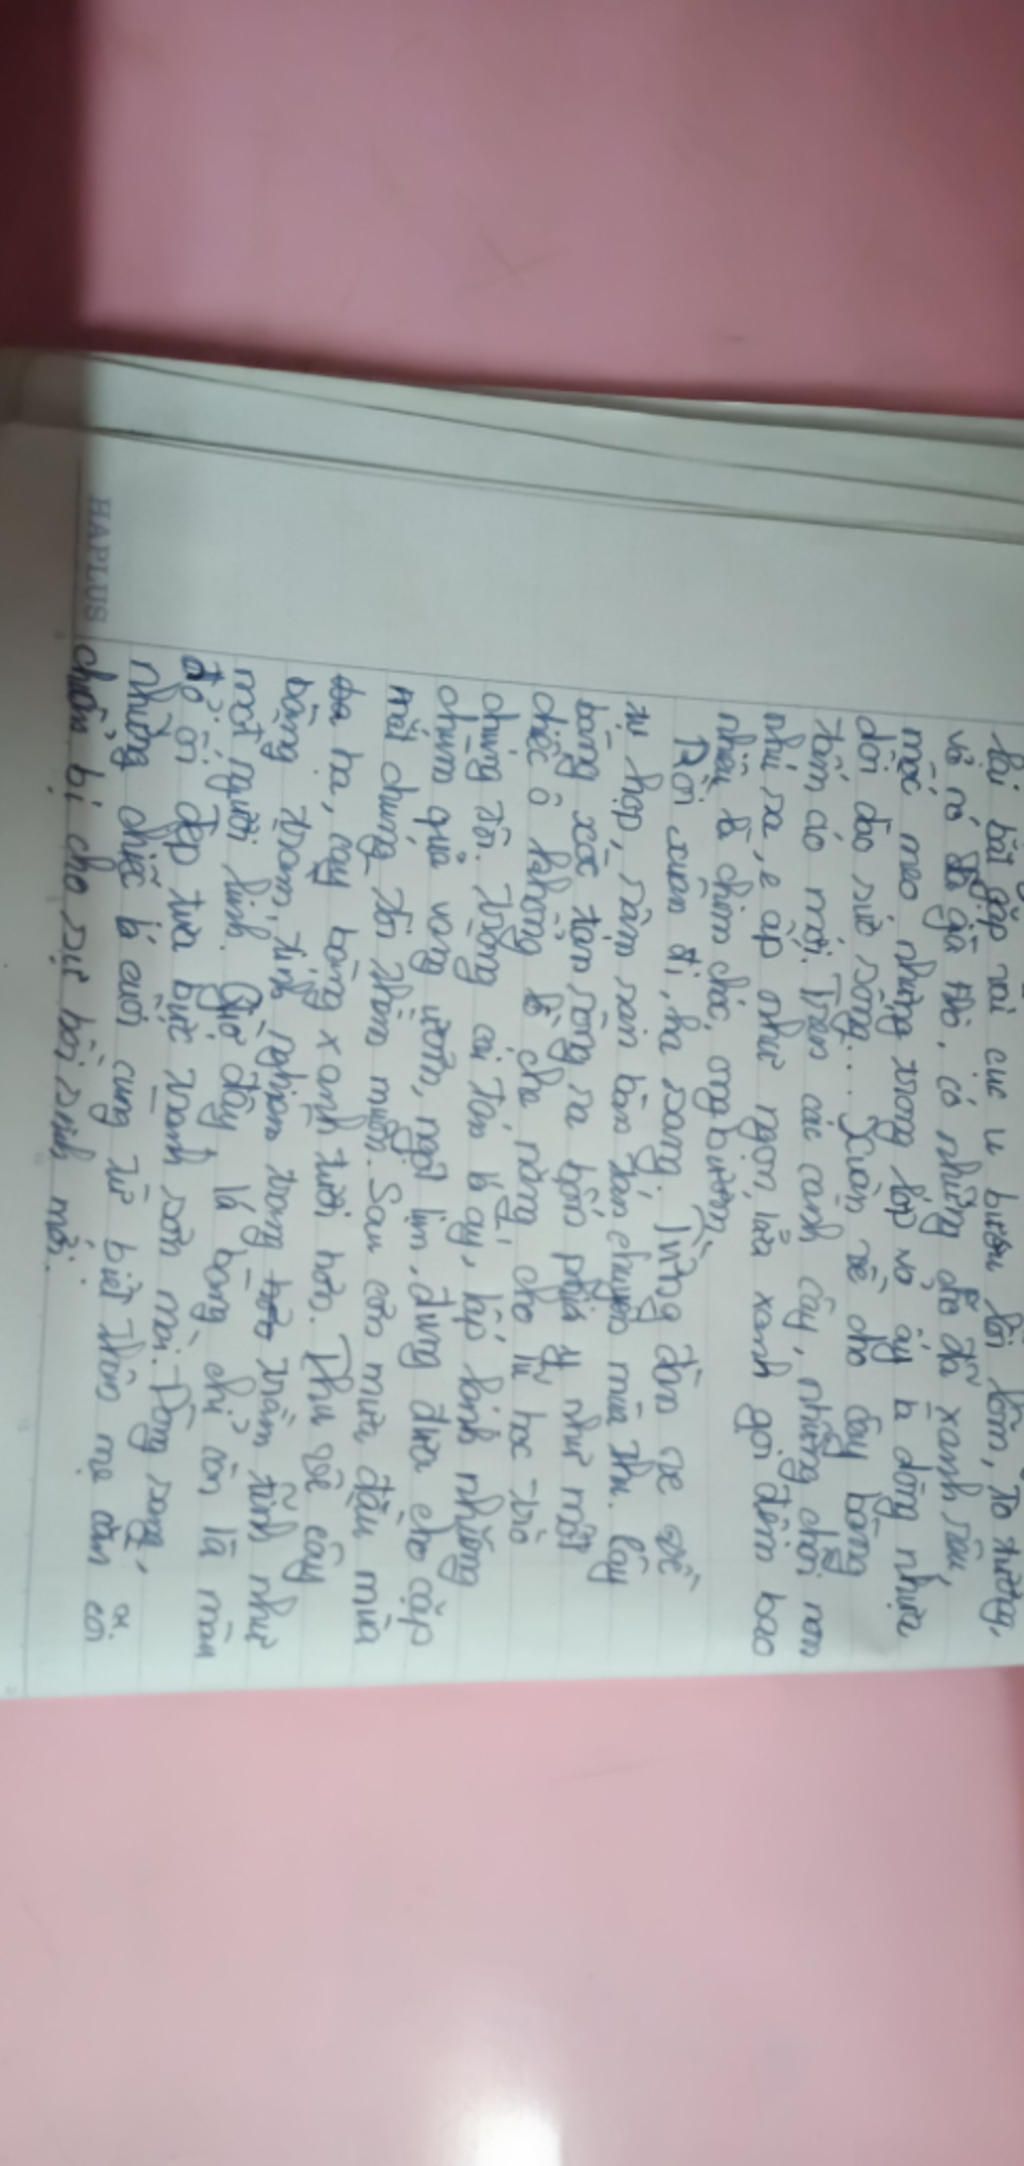 lại bắt gặp vài cục u bướu lồi lõm, to tướng,
vỏ nó già đó, có những chỗ đã xanh rêu,
mốc meo nhưng trong lớp vỏ ấy là dòng nhựa
dồi dào sức sống... Xuân về cho cây bàng
tấm áo mới. Trên các cành cây, những chồi non
nhú ra, e ấp như ngọn lửa xanh gọi đến bao
nhiêu là chim chóc, ong bướm.
Rồi xuân đi, hạ sang. Từng đàn ve về
tụ họp, râm ran bàn tán chuyện mùa thu. Cây
bàng xòe tán rộng ra bốn phía y như một
chiếc ô khổng lồ che nắng cho lũ học trò
chúng tôi. Trong cái tán lá ấy, lấp lánh những
chùm quả vàng ươm, ngọt lịm, đung đưa cho cặp
mắt chúng tôi thèm muốn. Sau cơn mưa đầu mùa
hạ, cây bàng xanh tươi hơn. Thu về cây
bàng trầm tĩnh nghiêm trang trầm tĩnh như
một người lính. Giờ đây lá bàng chỉ còn là màu
đỏ ối đẹp tựa bức tranh sơn mài. Đông sang,
những chiếc lá cuối cùng từ biệt thân mẹ dần
chuẩn bị cho sự hồi sinh mới.
HAPLUS